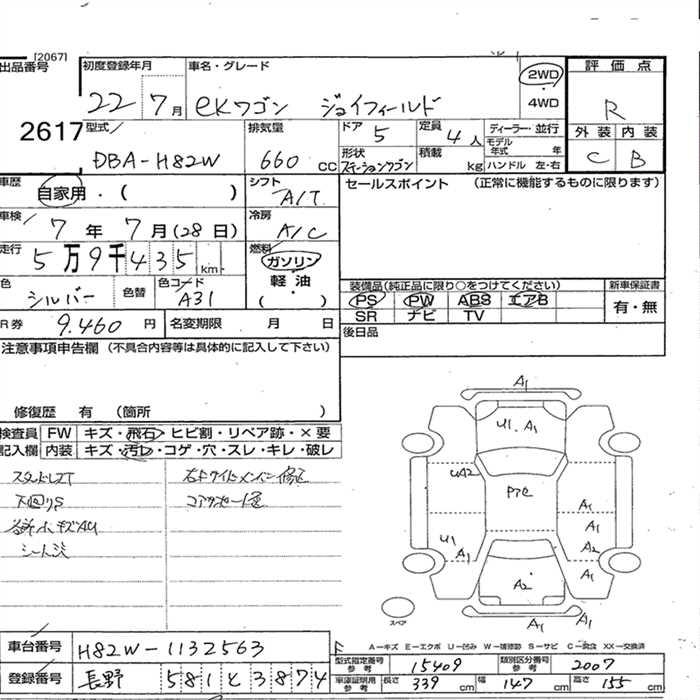 [2067]
出品番号 初度登録年月 車名・グレード 評価点
22 7月 eKワゴン ジョイフィールド 2WD・4WD R
2617 型式 排気量 ドア 5 定員 4人 ディーラー・並行 外装 内装
モデル年式 年
DBA-H82W 660cc 形状 ステーションワゴン 積載 kg ハンドル 左・右 C B
車歴 自家用・( ) シフト A/T セールスポイント (正常に機能するものに限ります)
車検 7年7月(28日) 冷房 A/C
走行 5万9千435km 燃料 ガソリン
軽油
( )
色 シルバー 色替 色コード A31 装備品(純正品に限り○をつけてください) 新車保証書
PS PW ABS エアB 有・無
SR ナビ TV
R券 9.460円 名変期限 月 日 後日品
注意事項申告欄 (不具合内容等は具体的に記入して下さい)
修復歴 有 (箇所 )
検査員 FW キズ・飛石・ヒビ割・リペア跡・×要
記入欄 内装 キズ・汚レ・コゲ・穴・スレ・キレ・破レ
下回りS
A1
U1.A1
UA2
A1
A1
U1 A1 A2
A1
A2
A1 A1
スペア
A-キズ E-エクボ U-凹み W-補修跡 S-サビ C-腐食 XX-交換済
車台番号 H82W-1132563
型式指定番号 参考 15409 類別区分番号 参考 2007
登録番号 長野 581 と 3874
車庫証明用 参考 長さ 339cm 幅 147cm 高さ 155cm